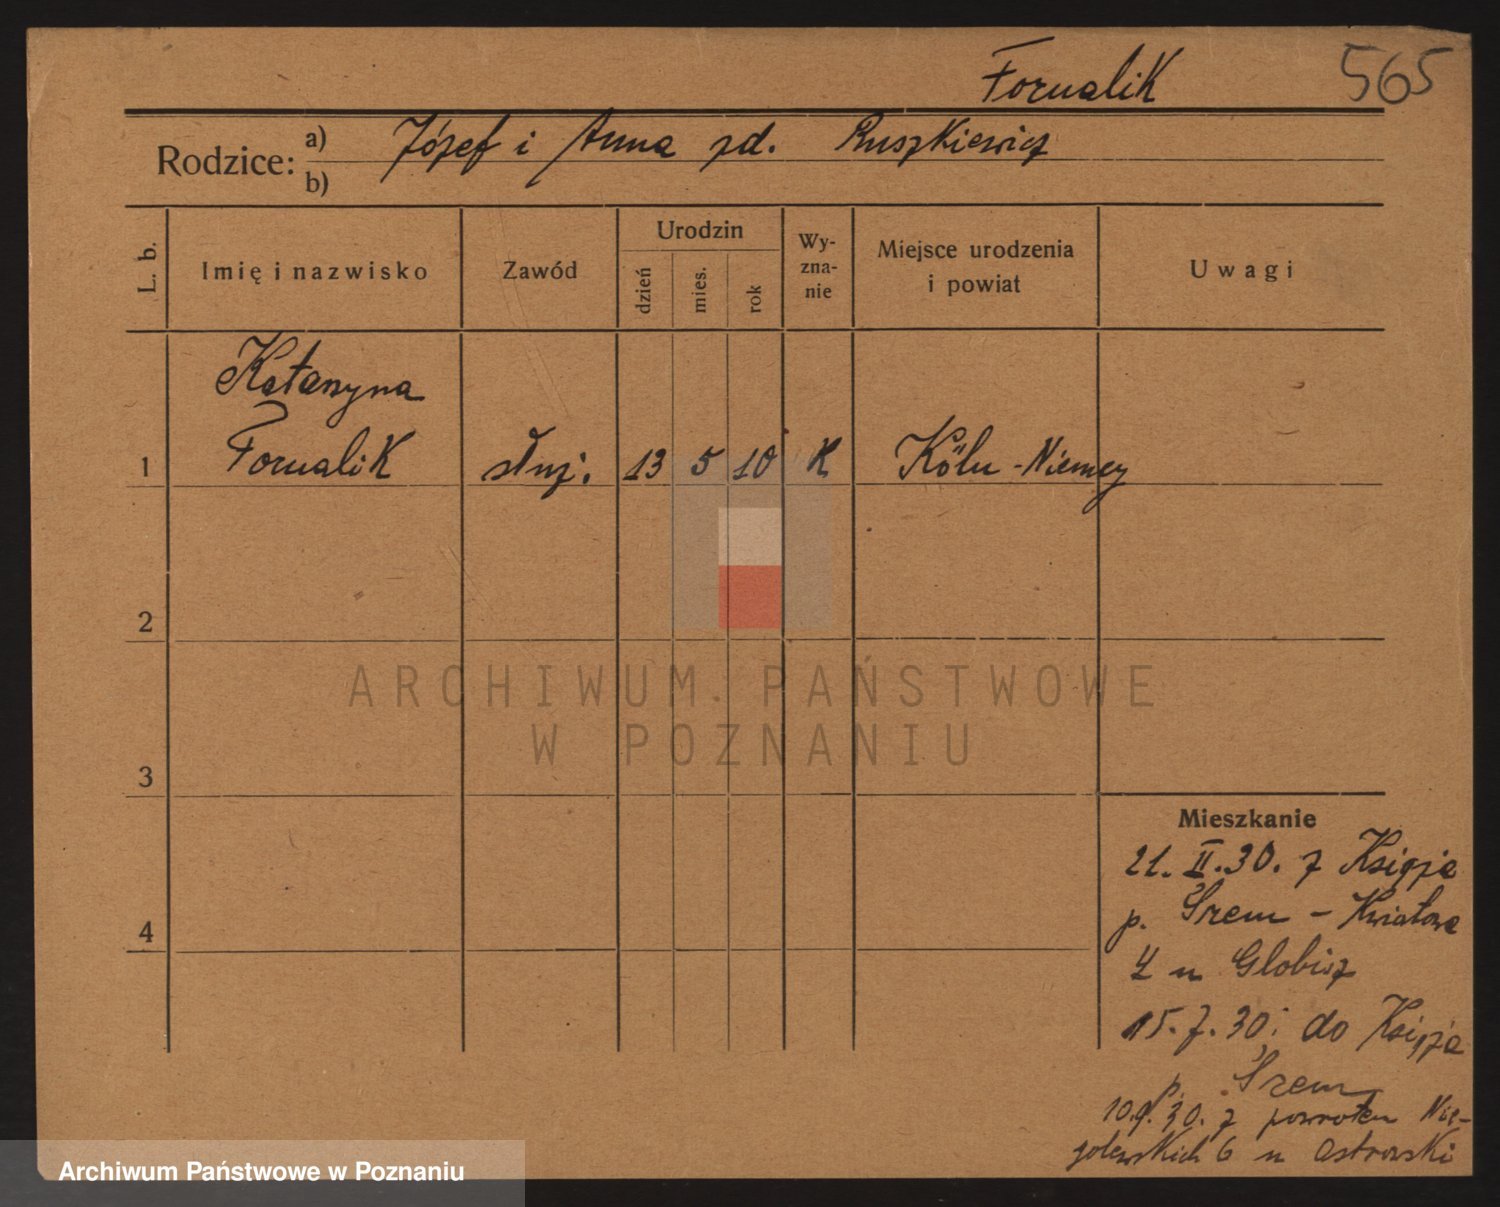 Fornalik 565
Rodzice: a) Józef i Anna zd. Ruszkiewicz
b)
L. b. Imię i nazwisko Zawód Urodzin dzień mies. rok Wy-zna-nie Miejsce urodzenia i powiat Uwagi
Katarzyna
1 Fornalik służ. 13 5 10 K Köln - Niemcy
2
ARCHIWUM PAŃSTWOWE
W POZNANIU
3
Mieszkanie
21. II. 30. z Książa
p. Śrem - Kwiatowa
4
4 u Globisz
15. 7. 30. do Książa
p. Śrem
10. 9. 30. z powrotem Nie-
golewskich 6 u Ostrowski
Archiwum Państwowe w Poznaniu